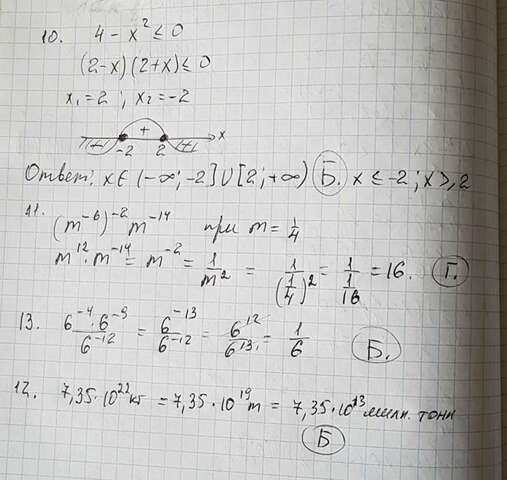 10. 4 - x² ≤ 0
(2-x)(2+x) ≤ 0
x₁ = 2 ; x₂ = -2
+
-2 2 x
Ответ: x ∈ (-∞; -2] ∪ [2; +∞) Б. x ≤ -2; x ≥ 2
11. (m⁻⁶)⁻² m⁻¹⁴ при m = 1/4
m¹² · m⁻¹⁴ = m⁻² = 1/m² = 1/(1/4)² = 1/(1/16) = 16. Г.
13. 6⁻⁴ · 6⁻⁹/6⁻¹² = 6⁻¹³/6⁻¹² = 6¹²/6¹³ = 1/6 Б.
12. 7,35 · 10²² кг = 7,35 · 10¹⁹ т = 7,35 · 10¹³ млн. тонн
Б